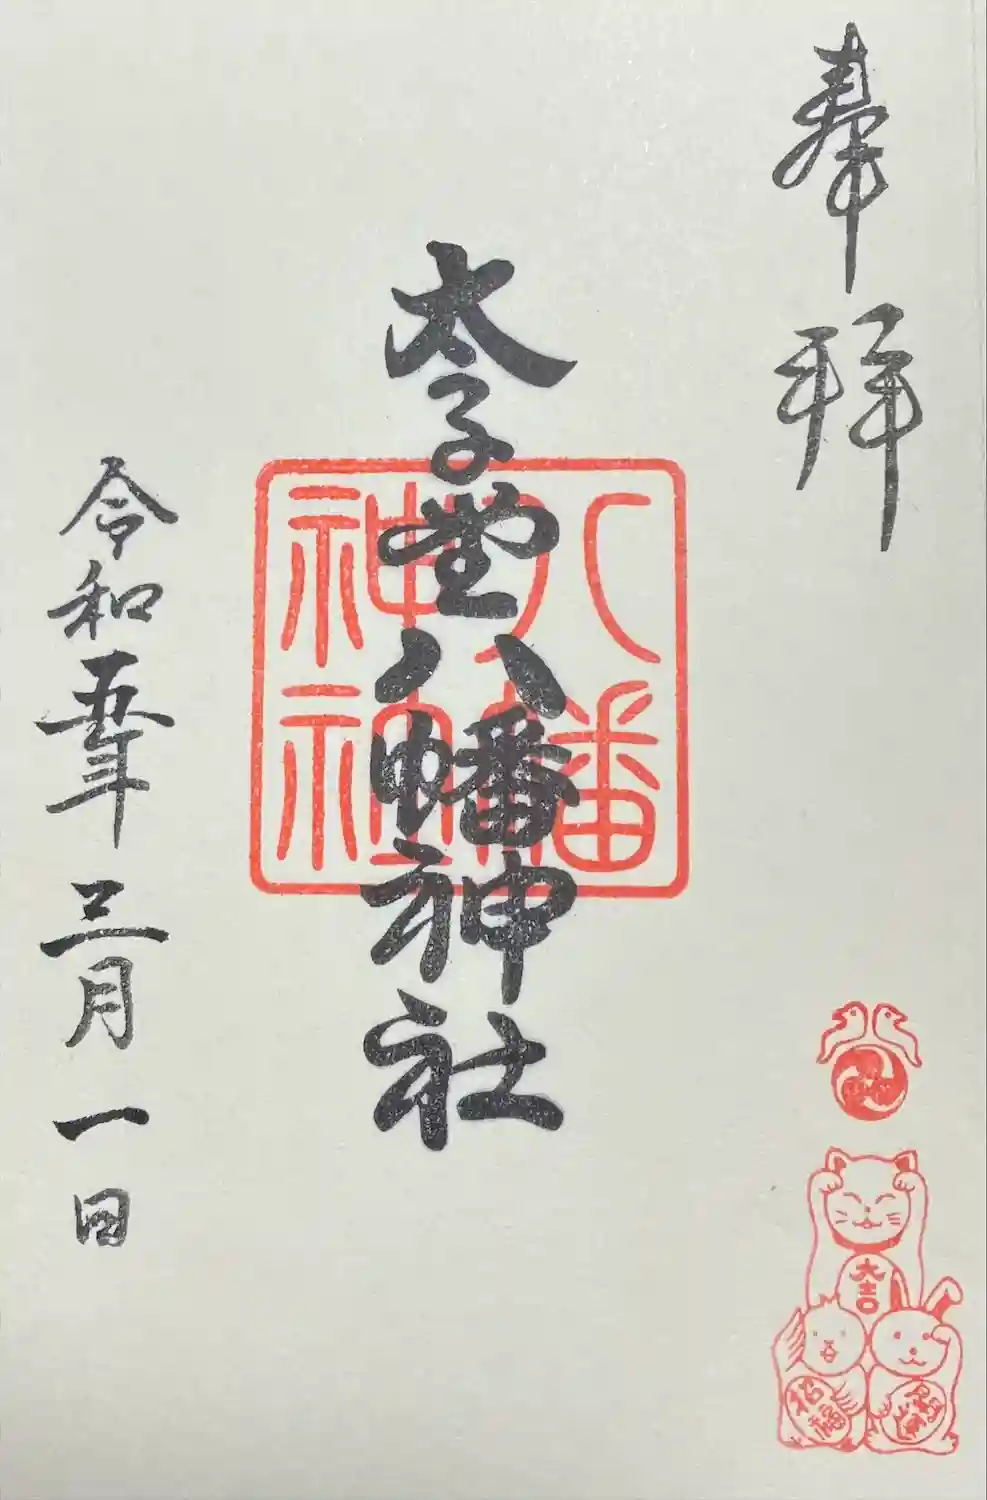 奉拝
八幡
神社
太子堂八幡神社
令和五年三月一日
大吉
招福